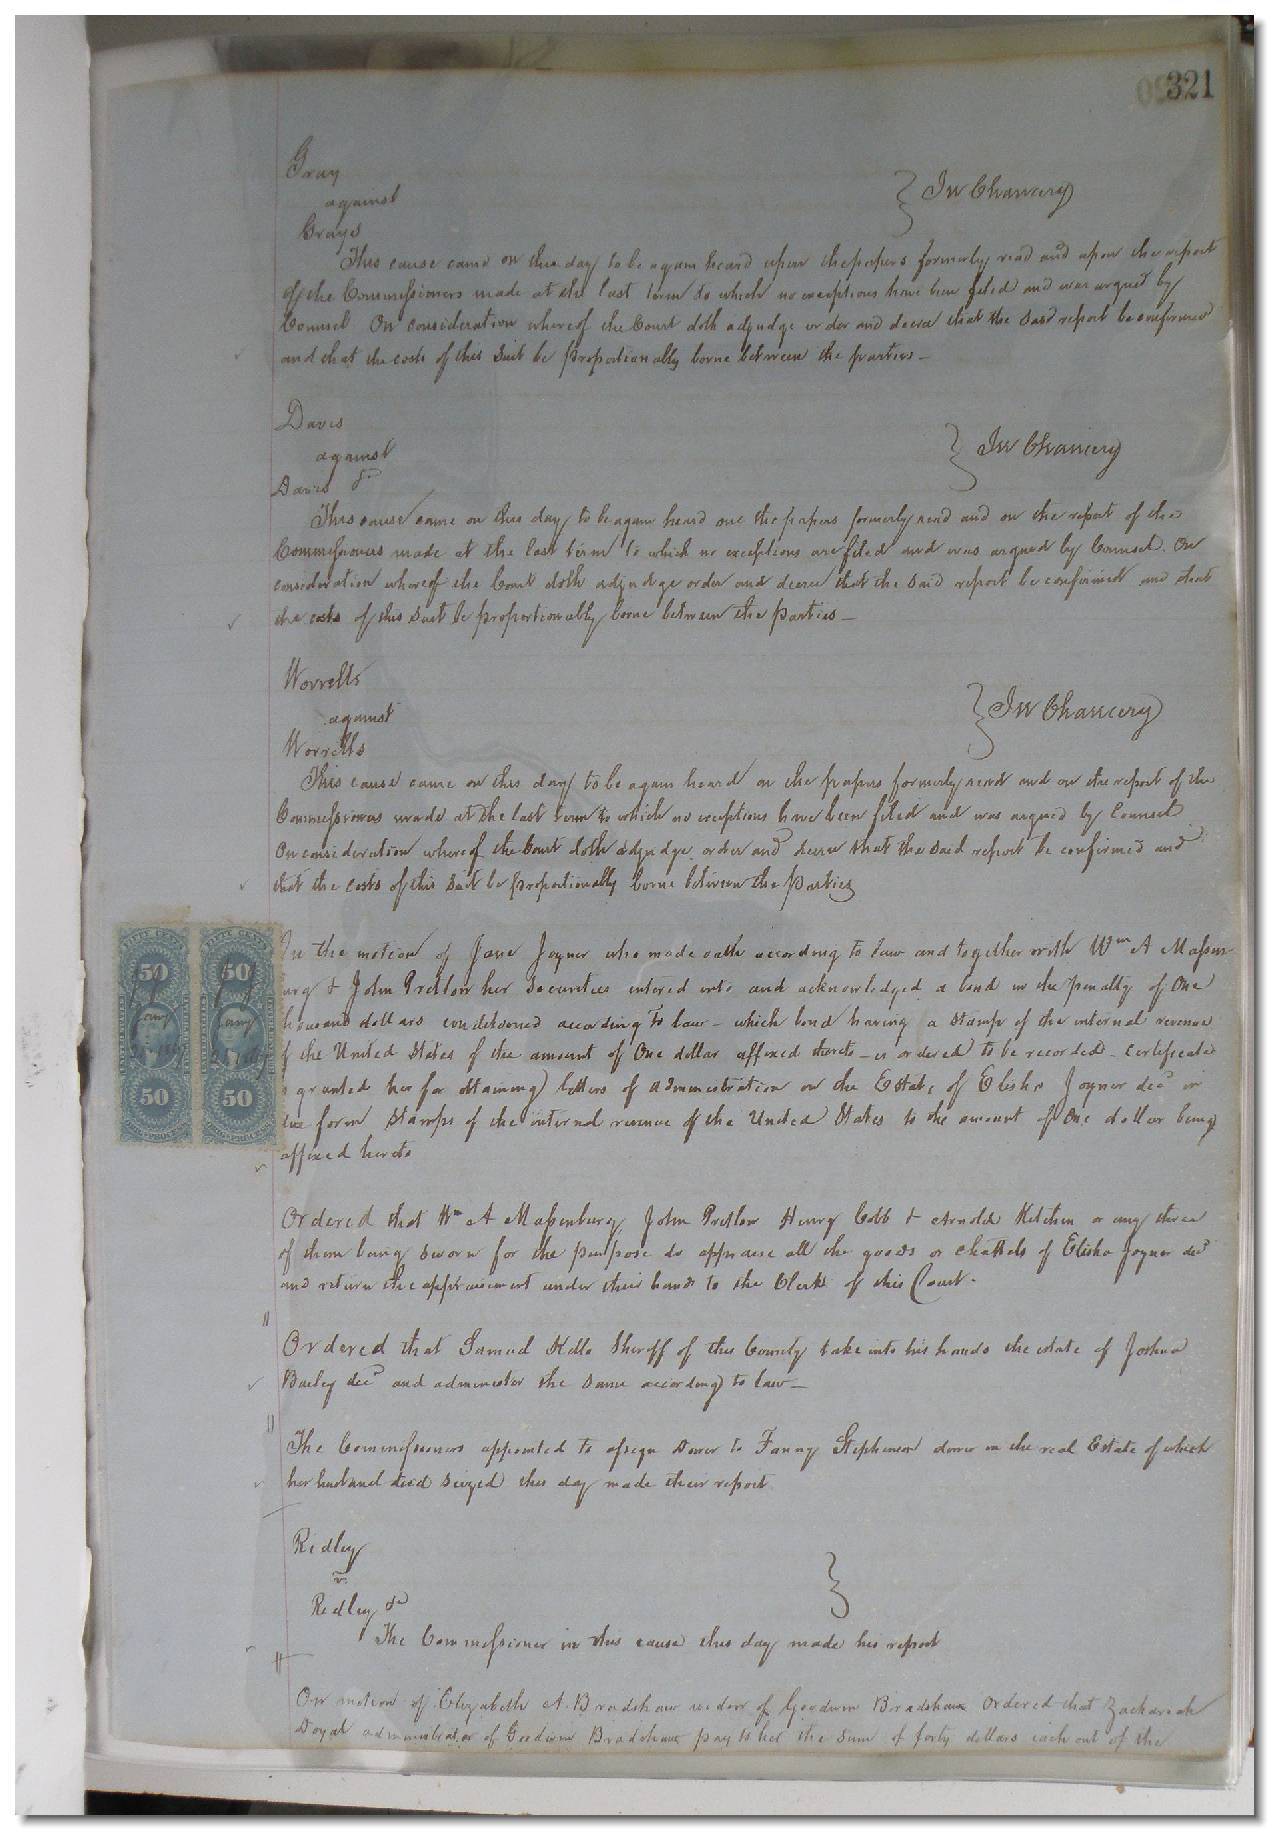 321
Gray
against
Grays
In Chancery
This cause came on this day to be again heard upon the papers formerly read and upon the report
of the Commissioners made at the last term to which no exceptions have been filed and was argued by
Counsel On consideration whereof the Court doth adjudge order and decree that the said report be confirmed
and that the costs of this suit be proportionally borne between the parties
Davis
against
Davis &c
In Chancery
This cause came on this day to be again heard one the papers formerly read and on the report of the
Commissioners made at the last term to which no exceptions are filed and was argued by Counsel. On
consideration whereof the Court doth adjudge order and decree that the said report be confirmed and that
the costs of this suit be proportionably borne between the parties
Worrells
against
Worrells
In Chancery
This cause came on this day to be again heard on the papers formerly read and on the report of the
Commissioners made at the last term to which no exceptions have been filed and was argued by Counsel
On consideration whereof the Court doth adjudge order and decree that the said report be confirmed and
that the costs of this suit be proportionally borne between the Parties
FIFTY CENTS FIFTY CENTS
50 50
50 50
the motion of Jane Joyner who made oath according to law and together with Wm A Massen
urg & John Pretlow her securities entered into and acknowledged a bond in the penalty of One
housand dollars conditioned according to law - which bond having a stamp of the internal revenue
f the United States of the amount of One dollar affixed thereto - is ordered to be recorded. certificate
s granted her for obtaining letters of administration on the Estate of Elisha Joyner decd in
ue form Stamps of the internal revenue of the United States to the amount of One dollar being
affixed hereto
Ordered that Wm A Massenburg, John Pretlow Henry Cobb & Arnold Kitchen or any three
of them being sworn for the purpose do appraise all the goods or chattels of Elisha Joyner decd
and return the appraisement under their hands to the Clerk of this Court.
Ordered that Samuel Kello Sheriff of this County take into his hands the estate of Joshua
Bailey decd and administer the same according to law
The Commissioners appointed to assign Dower to Fanny Stephenson dower in the real Estate of which
her husband died seized this day made their report
Ridley
v.
Ridley &c
The Commissioner in this cause this day made his report
On motion of Elizabeth A. Bradshaw widow of Goodwin Bradshaw Ordered that Zachariah
Doyal administrator of Goodwin Bradshaw pay to her the sum of forty dollars each out of the